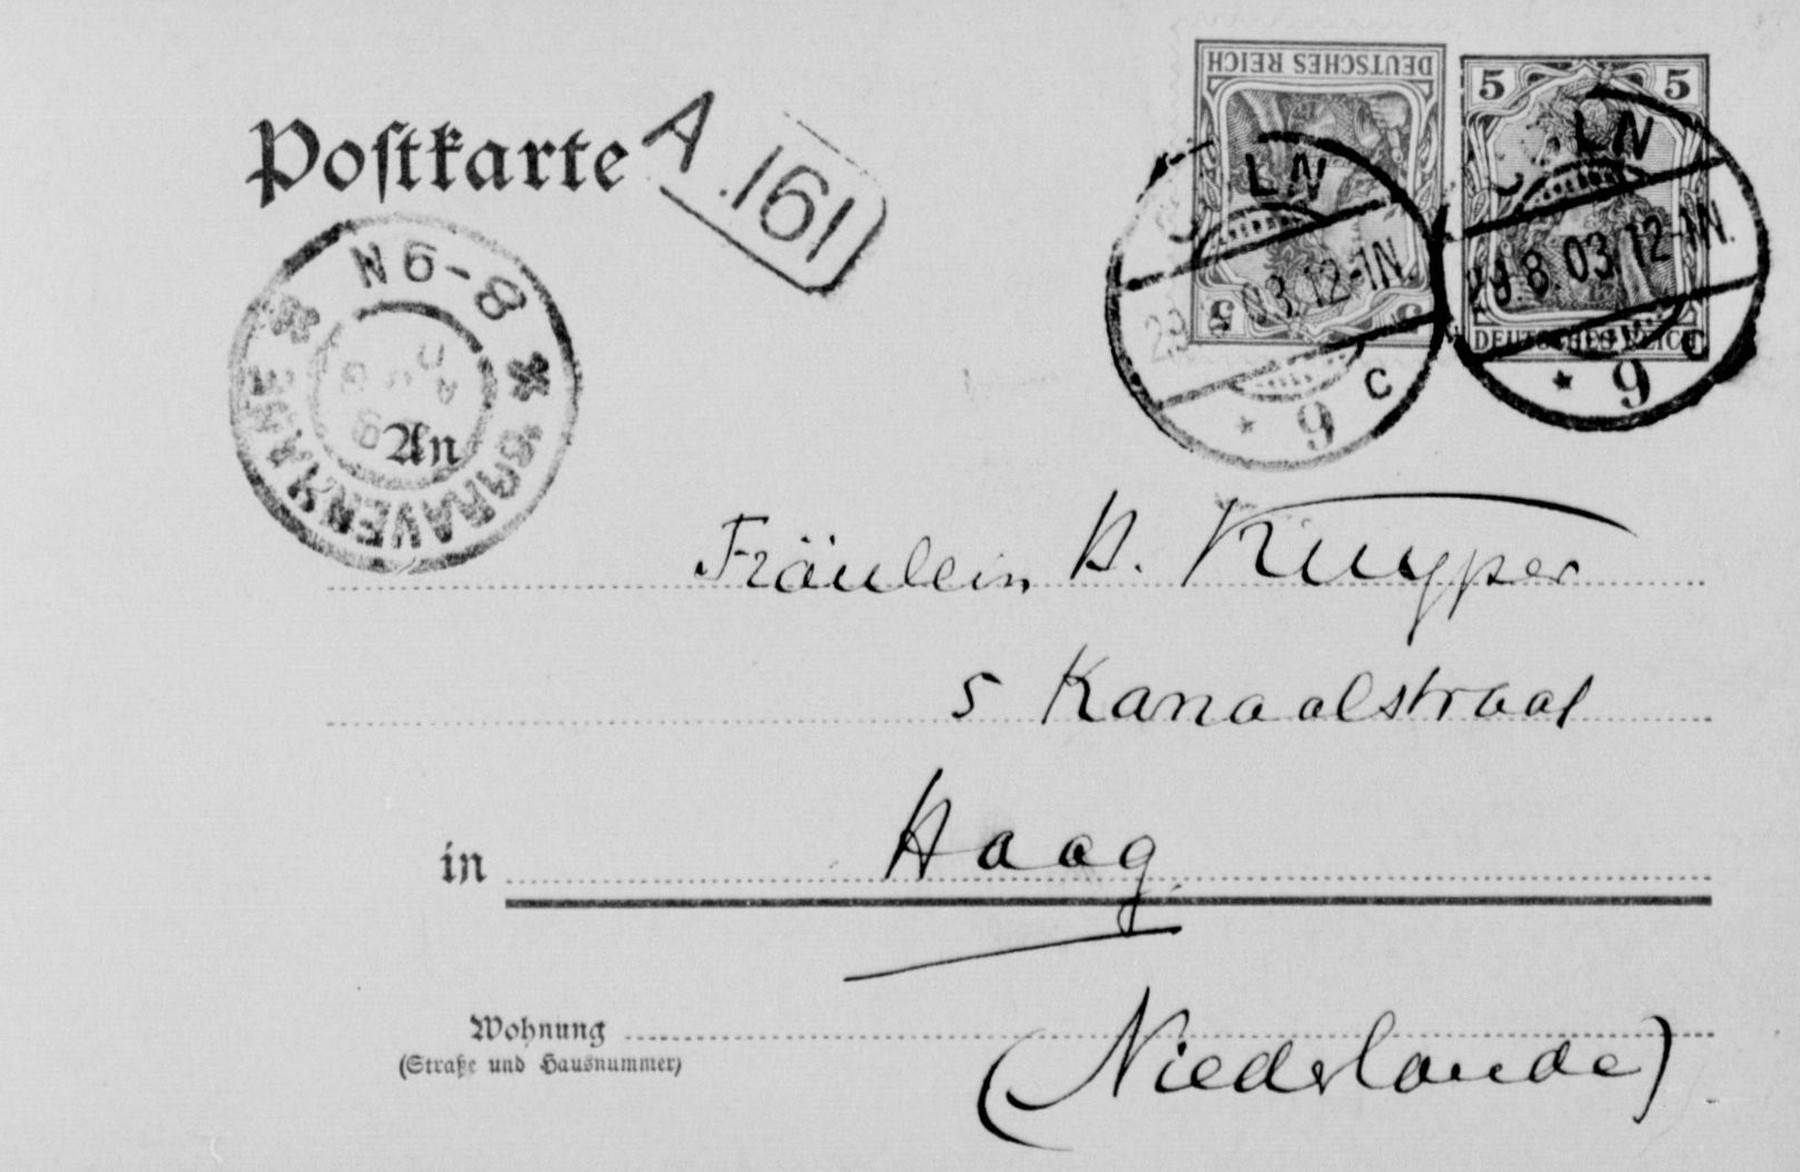 Postkarte
A.161
DEUTSCHES REICH
5 5
DEUTSCHES REICH
LN
03.12-1N.
* 9 c
LN
29.8.03.12-1N.
* 9 c
N 6-8
'SGRAVENHAGE
An
Fräulein H. Kuyper
5 Kanaalstraat
in Haag
(Niederlande)
Wohnung
(Straße und Hausnummer)